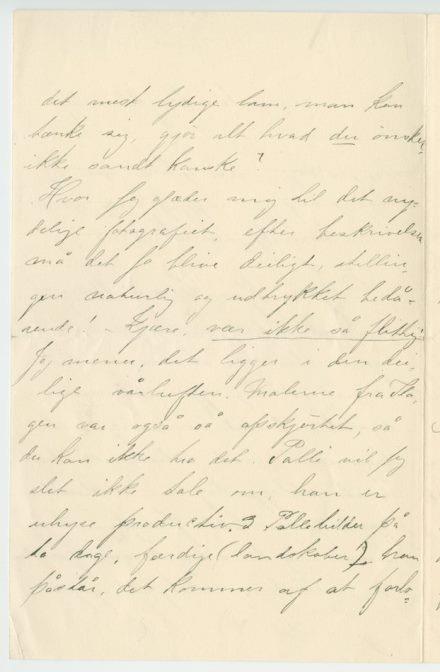 det mest lydige lam, man kan
tænke sig, gjør alt hvad du ønsker,
ikke sandt kanske?
Hvor jeg glæder mig til det ny-
delige fotografiet, efter beskrivelsen
må det jo blive deiligt, stillin-
gen naturlig og udtrykket bedå-
rende! - Kjære, vær ikke så flittig
Jeg mener, det ligger i den dei-
lige vårluften. Malerne fra
gen var også så opskjørtet, så
du kan ikke tro det. Palle vil jeg
slet ikke tale om, han er
uhyre productiv. 3 Pallebilder på
to dage, færdige (landskaber), han
påstår, det kommer af at forlo-